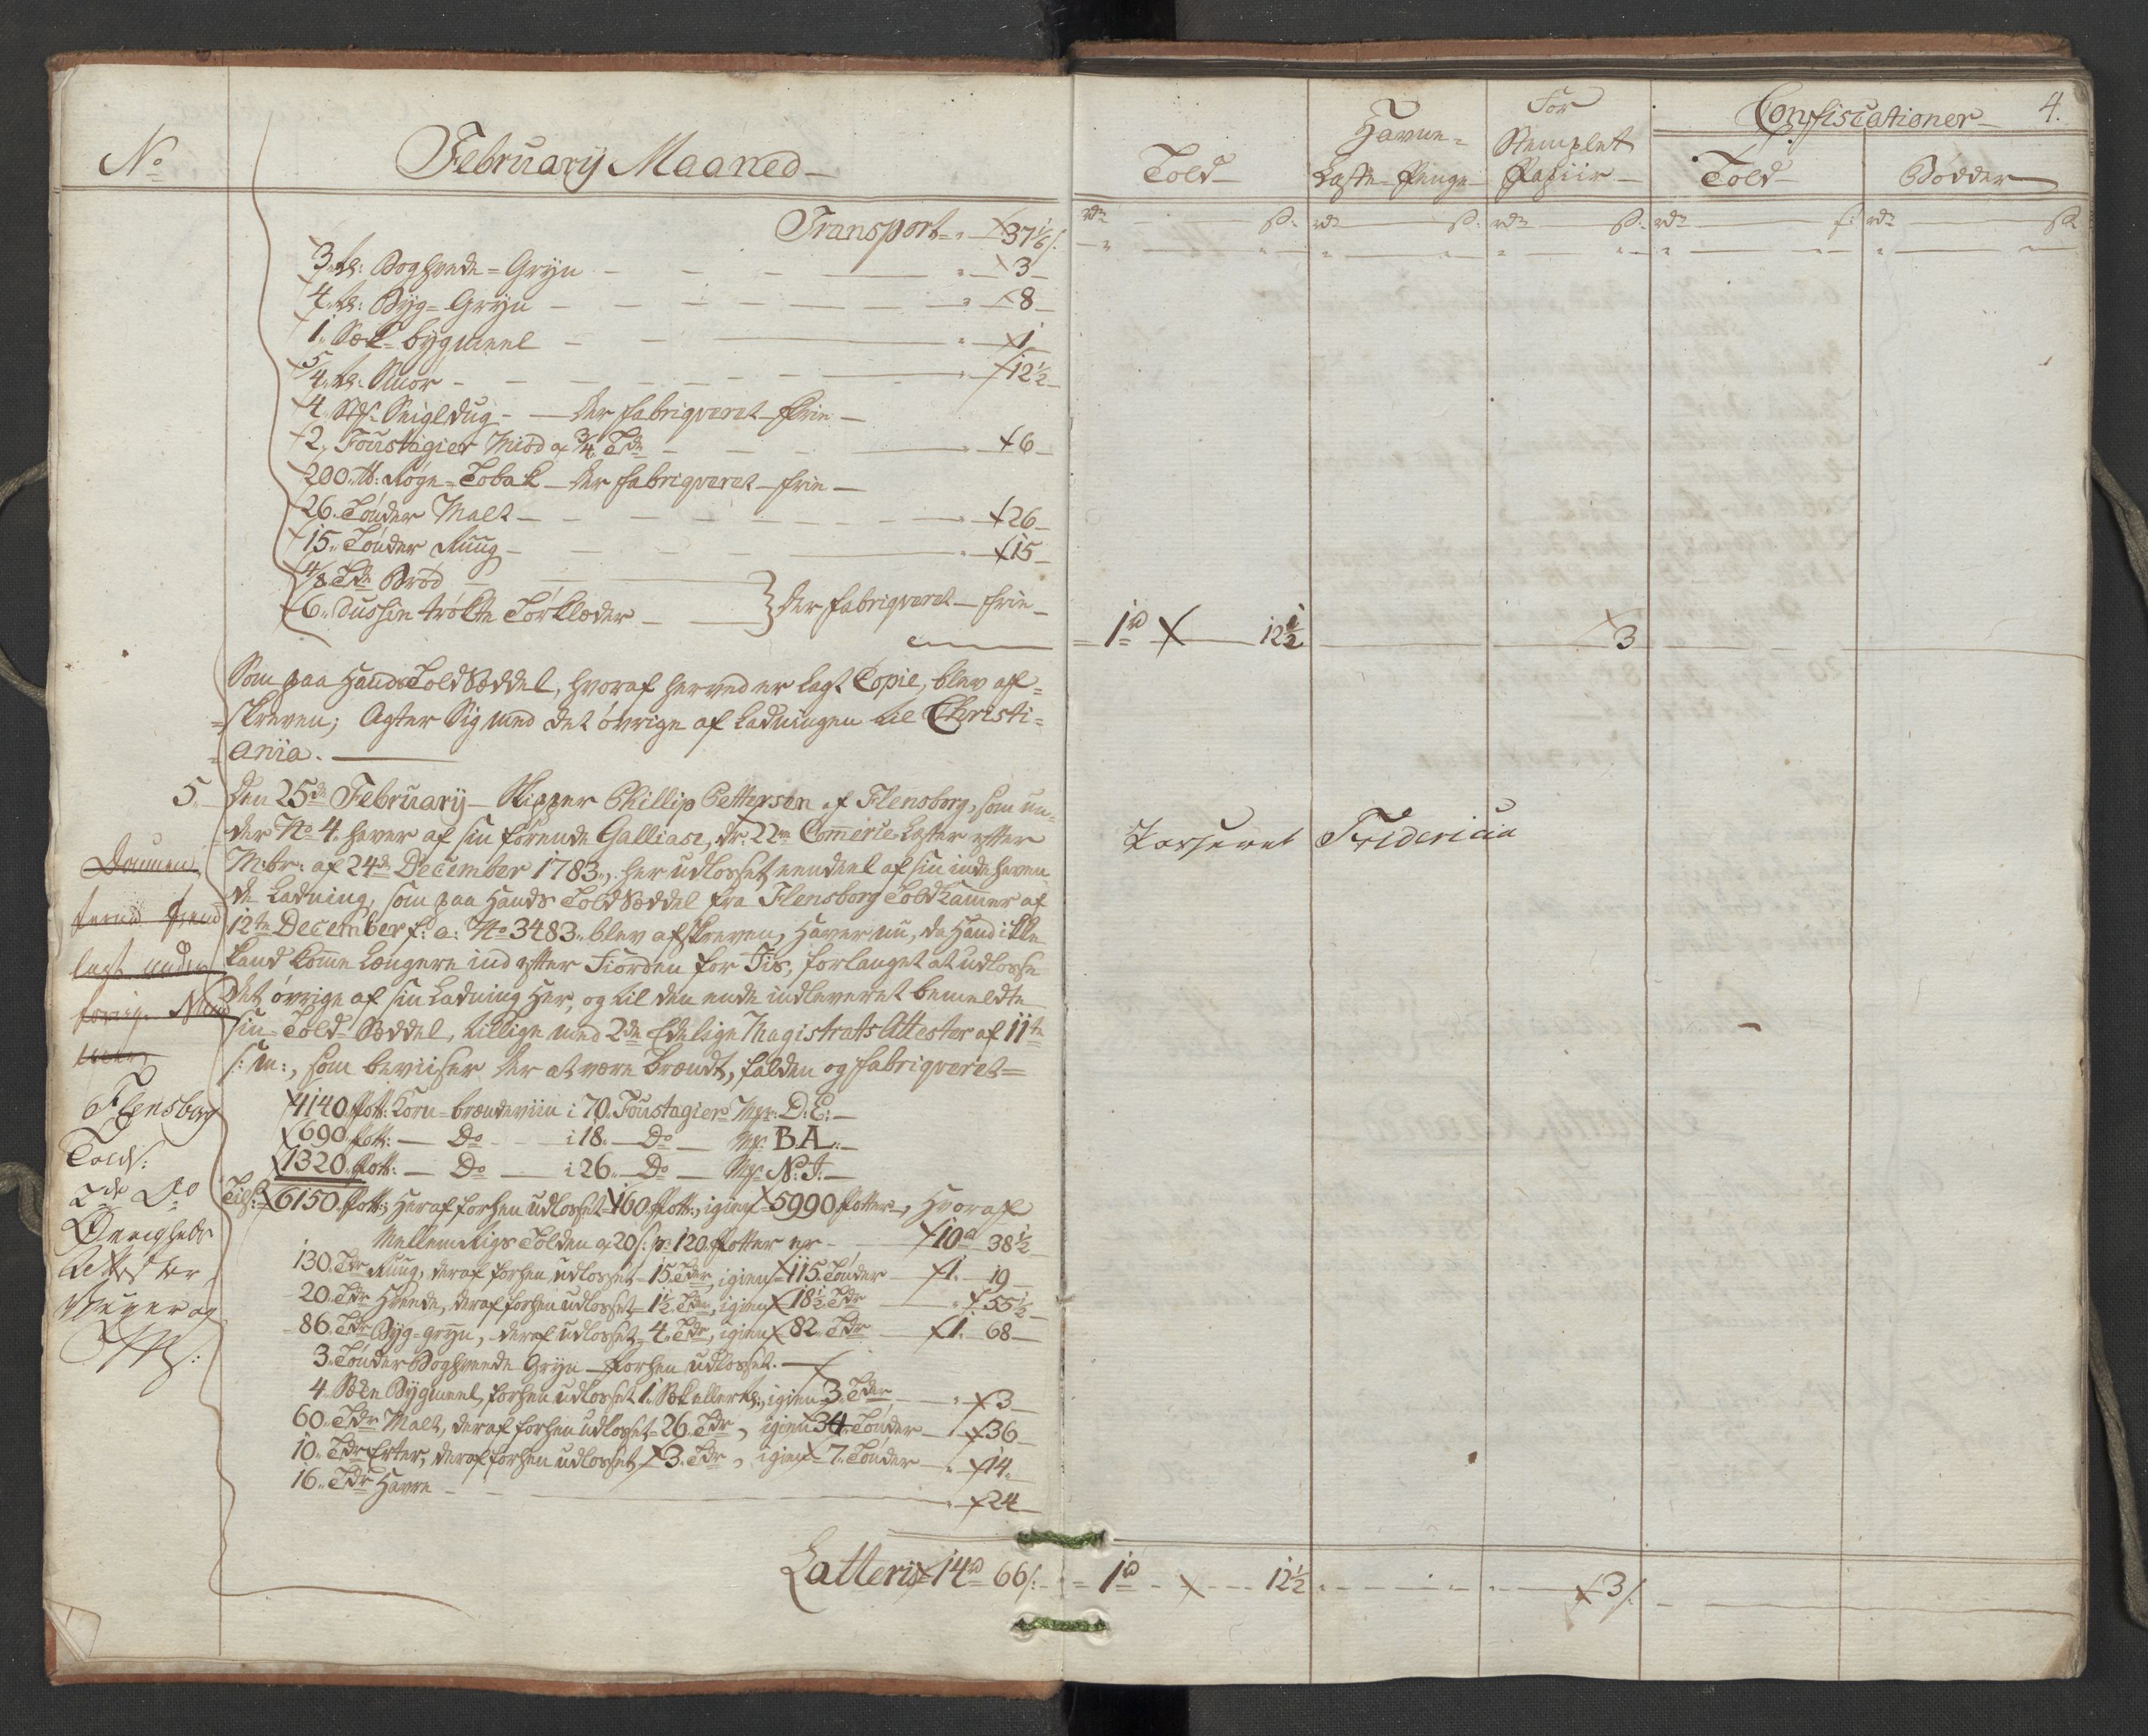 No
February Maaned
Transport " 37 1/6 s.
3 td: Boghvede-Gryn " 3
4 td: Byg-Gryn " 8
1 Sæk bygmeel " 1
5/4 td: Smør " 12 1/2
4 Seigldug der fabriqveret frie
2 Foustagier Miød a 3/4 Tde 6
200 td: Røge-Tobak der fabriqveret frie
26 Tønder Malt 26
15 Tønder Ruug " 15
4/8 Tde Brød
6 dussin trøkte Tørklæder } der fabriqveret frie
Som paa Hands Told Sæddel, hvoraf herved er lagt Copie, blev af=
=skreven; Agter Sig med det øvrige af Ladningen til Christi=
=ania.
5. Den 25de February Skipper Phillip Pettersen af Flensborg, som un=
=der No 4. haver af sin førende Galliase, dr: 22 Commerce Læster efter
M:br: af 24de December 1783, her udlosset eendeel af sin indehaven
de Ladning, som paa Hands Told Sæddel fra Flensborg Toldkamer af
12te December f: a: No 3483 blev afskreven, haver nu, da Hand ikke
kand komme Længere ind efter Fiorden for Iis, forlanget at udlosse
det øvrige af sin Ladning Her, og til den ende indleveret bemeldte
sin Told Sæddel, tillige med 2de Edelige Magistrats Attester af 11te
s: m:, som beviiser der at være brændt, falden og fabriqveret=
4140 Pott: Korn-brændeviin i 70 Foustagier Mrr: D: E:
690 Pott: Do i 18 Do Mr: B.A.
1320 Pott: Do i 26 Do Mr: N: J:
Tils: 6150 Pott: Heraf forhen udlosset 160 Pott:, igien 5990 Potter, Hvoraf
Mellemrigs Tolden a 20 s: pr 120 Potter er 10 rd 38 1/2
130 Tdr Ruug, deraf forhen udlosset 15 Tdr, igien 115 Tønder 1. 19
20 Tdr Hvede, deraf forhen udlosset 1 1/2 Tdr, igien 18 1/2 Tdr " 55 1/2
86 Tdr Byg-gryn, deraf udlosset 4 Tdr, igien 82 Tdr 1. 68
3 Tønder Boghvede Gryn forhen udlosset.
4 Sæke Bygmeel, forhen udlosset 1 Sæk eller td:, igien 3 Tdr " 3
60 Tdr Malt, deraf forhen udlosset 26 Tdr, igien 34 Tønder " 36
10 Tdr Erter, deraf forhen udlosset 3 Tdr, igien 7 Tønder " 14
16 Tdr Havre " 24
Latteris 14 rd 66 s:
lagt under
Flensborg
Tolds:
2de Do
Øvrigheds
Attester
og
Told
Havne=
Laste-Penge
For
Stemplet
Papiir
Confiscationer
4.
Told
Bødder
rdr s: rdr s: rdr s: rdr s: rdr s:
1 rd 12 1/2 3
Passeret Fridericia
1 rd 12 1/2 3 s.